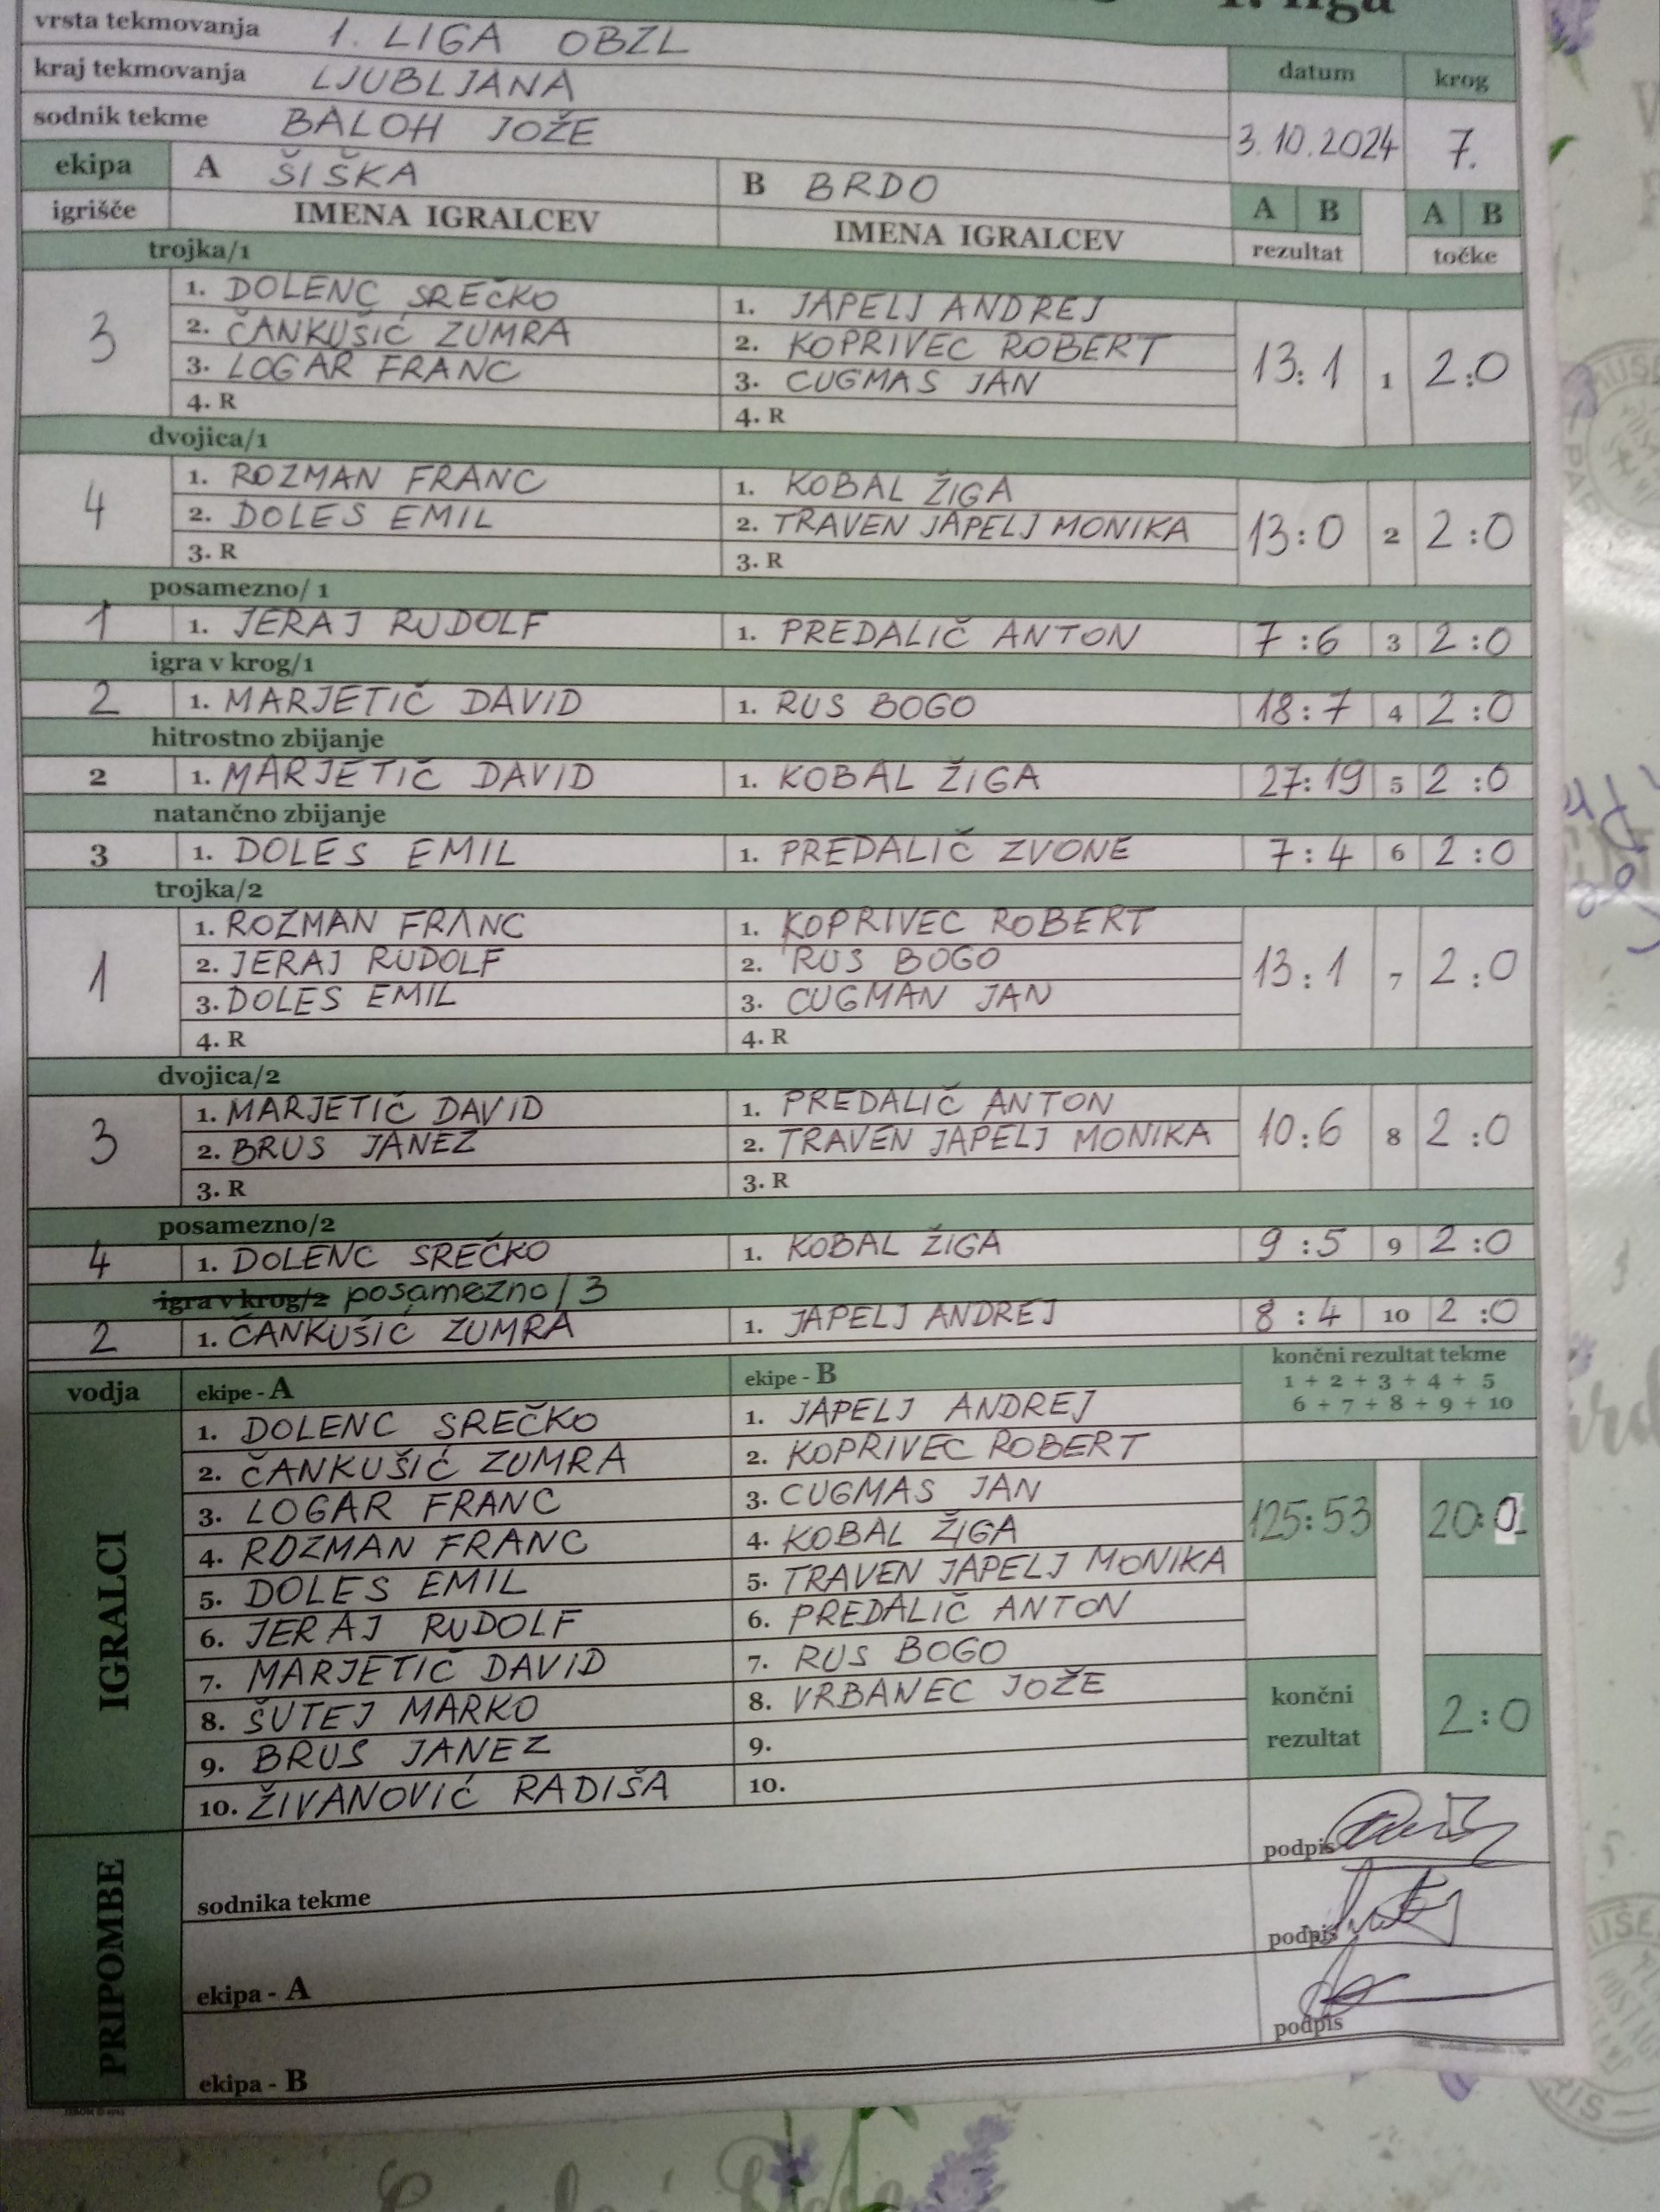 1. liga
vrsta tekmovanja 1. LIGA OBZL
kraj tekmovanja LJUBLJANA datum krog
sodnik tekme BALOH JOŽE 3.10.2024 7.
ekipa A ŠIŠKA B BRDO A B A B
igrišče IMENA IGRALCEV IMENA IGRALCEV rezultat točke
trojka/1
1. DOLENC SREČKO 1. JAPELJ ANDREJ
2. ČANKUŠIĆ ZUMRA 2. KOPRIVEC ROBERT
3 3. LOGAR FRANC 3. CUGMAS JAN 13:1 1 2:0
4. R 4. R
dvojica/1
1. ROZMAN FRANC 1. KOBAL ŽIGA
4 2. DOLES EMIL 2. TRAVEN JAPELJ MONIKA 13:0 2 2:0
3. R 3. R
posamezno/ 1
1 1. JERAJ RUDOLF 1. PREDALIČ ANTON 7:6 3 2:0
igra v krog/1
2 1. MARJETIČ DAVID 1. RUS BOGO 18:7 4 2:0
hitrostno zbijanje
2 1. MARJETIČ DAVID 1. KOBAL ŽIGA 27:19 5 2:0
natančno zbijanje
3 1. DOLES EMIL 1. PREDALIČ ZVONE 7:4 6 2:0
trojka/2
1. ROZMAN FRANC 1. KOPRIVEC ROBERT
2. JERAJ RUDOLF 2. RUS BOGO
1 3. DOLES EMIL 3. CUGMAN JAN 13:1 7 2:0
4. R 4. R
dvojica/2
1. MARJETIČ DAVID 1. PREDALIČ ANTON
3 2. BRUS JANEZ 2. TRAVEN JAPELJ MONIKA 10:6 8 2:0
3. R 3. R
posamezno/2
4 1. DOLENC SREČKO 1. KOBAL ŽIGA 9:5 9 2:0
igra v krog/2 posamezno/3
2 1. ČANKUŠIĆ ZUMRA 1. JAPELJ ANDREJ 8:4 10 2:0
vodja ekipe - A ekipe - B končni rezultat tekme
1 + 2 + 3 + 4 + 5
6 + 7 + 8 + 9 + 10
IGRALCI
1. DOLENC SREČKO 1. JAPELJ ANDREJ
2. ČANKUŠIĆ ZUMRA 2. KOPRIVEC ROBERT
3. LOGAR FRANC 3. CUGMAS JAN
4. ROZMAN FRANC 4. KOBAL ŽIGA 125:53 20:0
5. DOLES EMIL 5. TRAVEN JAPELJ MONIKA
6. JERAJ RUDOLF 6. PREDALIČ ANTON
7. MARJETIČ DAVID 7. RUS BOGO
8. ŠUTEJ MARKO 8. VRBANEC JOŽE končni
9. BRUS JANEZ 9. rezultat 2:0
10. ŽIVANOVIĆ RADIŠA 10.
PRIPOMBE
sodnika tekme podpis
ekipa - A podpis
ekipa - B podpis